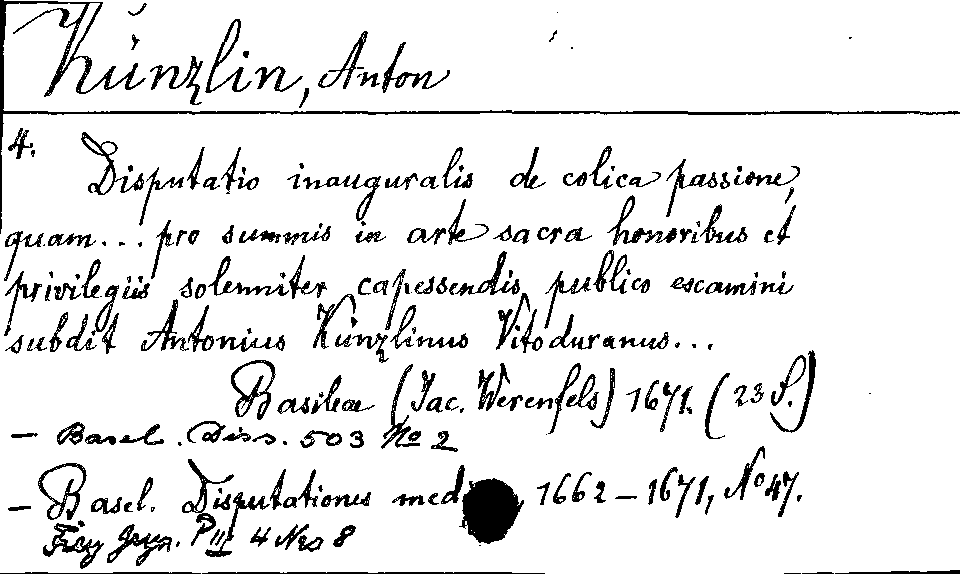 Künzlin, Anton
4.
Disputatio inauguralis de colica passione,
quam... pro summis in arte sacra honoribus et
privilegiis solenniter capessendis publico escamini
subdit Antonius Künzlinus Vitoduranus...
Basileae (Jac. Werenfels) 1671. (23 S.)
- Basel. Diss. 503 No 2
- Basel. Disputationes med 1662-1671, No 47.
P III 4 No 8